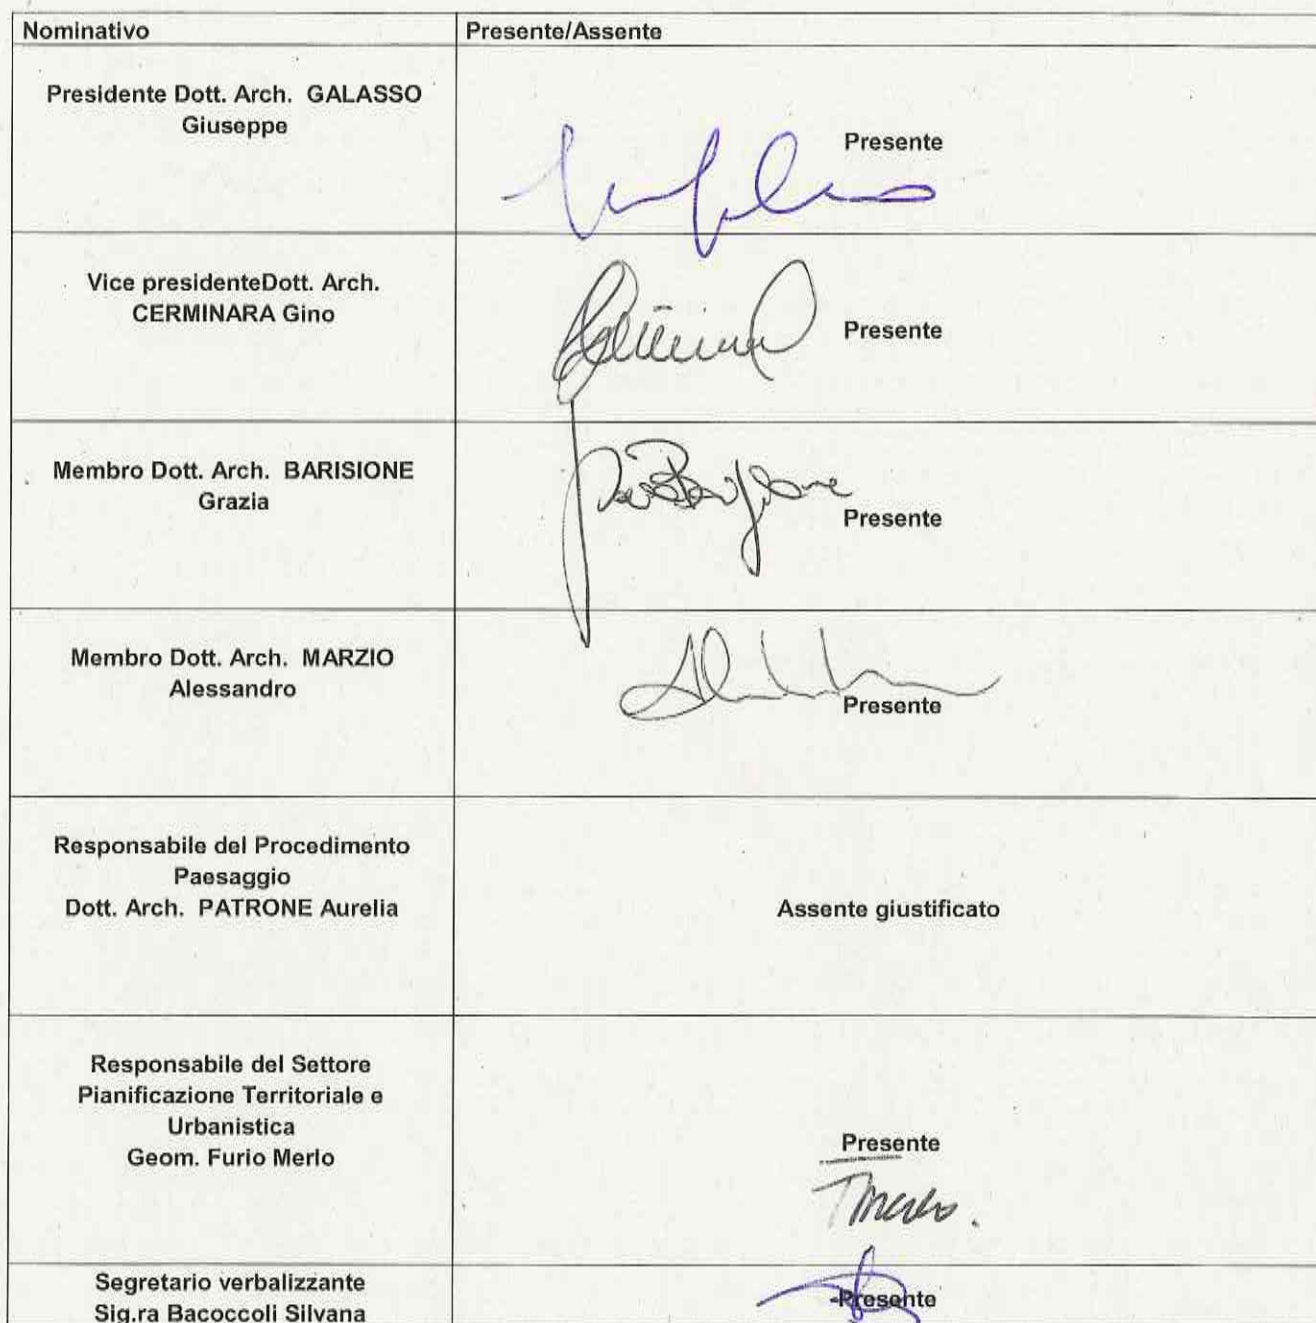 Nominativo Presente/Assente
Presidente Dott. Arch. GALASSO
Giuseppe
Presente
Vice presidenteDott. Arch.
CERMINARA Gino
Presente
Membro Dott. Arch. BARISIONE
Grazia
Presente
Membro Dott. Arch. MARZIO
Alessandro
Presente
Responsabile del Procedimento
Paesaggio
Dott. Arch. PATRONE Aurelia
Assente giustificato
Responsabile del Settore
Pianificazione Territoriale e
Urbanistica
Geom. Furio Merlo
Presente
Segretario verbalizzante
Sig.ra Bacoccoli Silvana
Presente